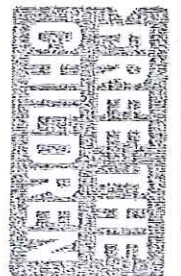 FREE THE
CHILDREN